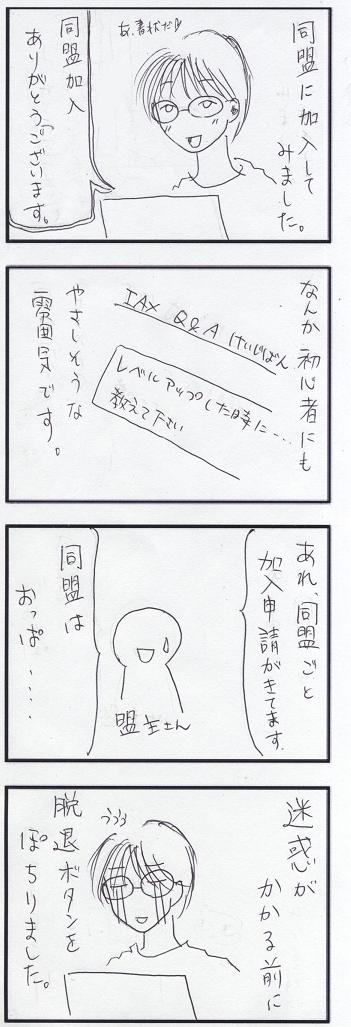 同盟に加入して
みました。
あ、書状だ
同盟加入
ありがとうございます。
なんか初心者にも
IXA Q&A けいじばん
レベルアップした時に…
教えて下さい
やさしそうな
雰囲気です。
あれ、同盟ごと
加入申請がきてます
盟主さん
同盟は
おっぱ....
迷惑が
かかる前に
ううう
脱退ボタンを
ぽちりました。